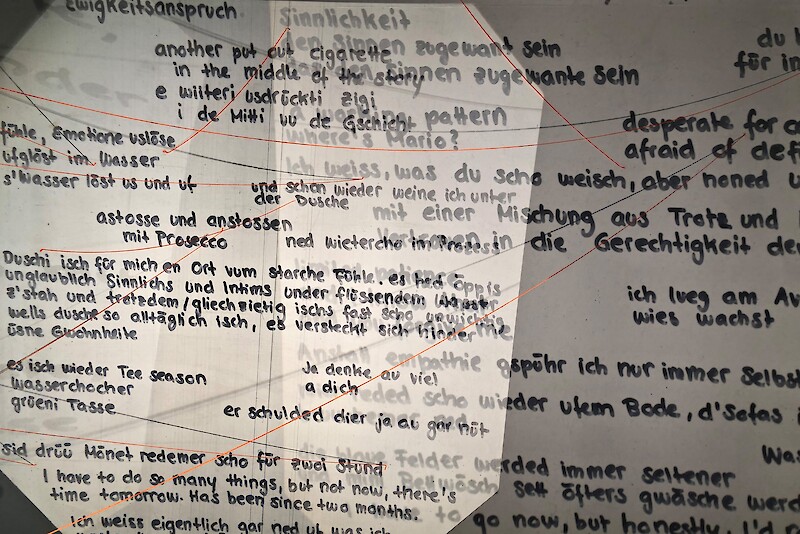 Ewigkeitsanspruch
Sinnlichkeit
den Sinnen zugewant sein
den Sinnen zugewante sein
du
für im
another put out cigarette
in the middle of the story
e wiiteri usdrückti zigi
i de Mitti vu de Gschicht
pattern
where's Mario?
desperate for
afraid of
fühle, Emotione uslöse
ufglöst im Wasser
s'Wasser löst us und uf
Ich weiss, was du scho weisch, aber noned
und schon wieder weine ich unter
der Dusche
mit einer Mischung aus Trotz und
Vertrauen in die Gerechtigkeit
astosse und anstossen
mit Prosecco
ned wietercho im Prozess
Duschi isch für mich en Ort vum starche Fühle. es hed öppis
unglaublich Sinnlichs und Intims under flüssendem Wasser
z'stah und trotzdem/gliechzietig ischs fast scho unwichtig
wells dusche so alltäglich isch, es versteckt sich hinder
üsne Gwohnheite
ich lueg am
wies wachst
empathie gspühr ich nur immer
es isch wieder Tee season
wasserchocher
grüeni Tasse
Ja denke au viel
a dich
scho wieder ufem Bode, d'Sofas
er schulded dier ja au gar nüt
sid drüü Mönet redemer scho für zwoi Stund
Felder werded immer seltener
sett öfters gwäsche
Was
I have to do so many things, but not now, there's
time tomorrow. Has been since two months.
to go now, but honestly, I'd
Ich weiss eigentlich gar ned ub was ich